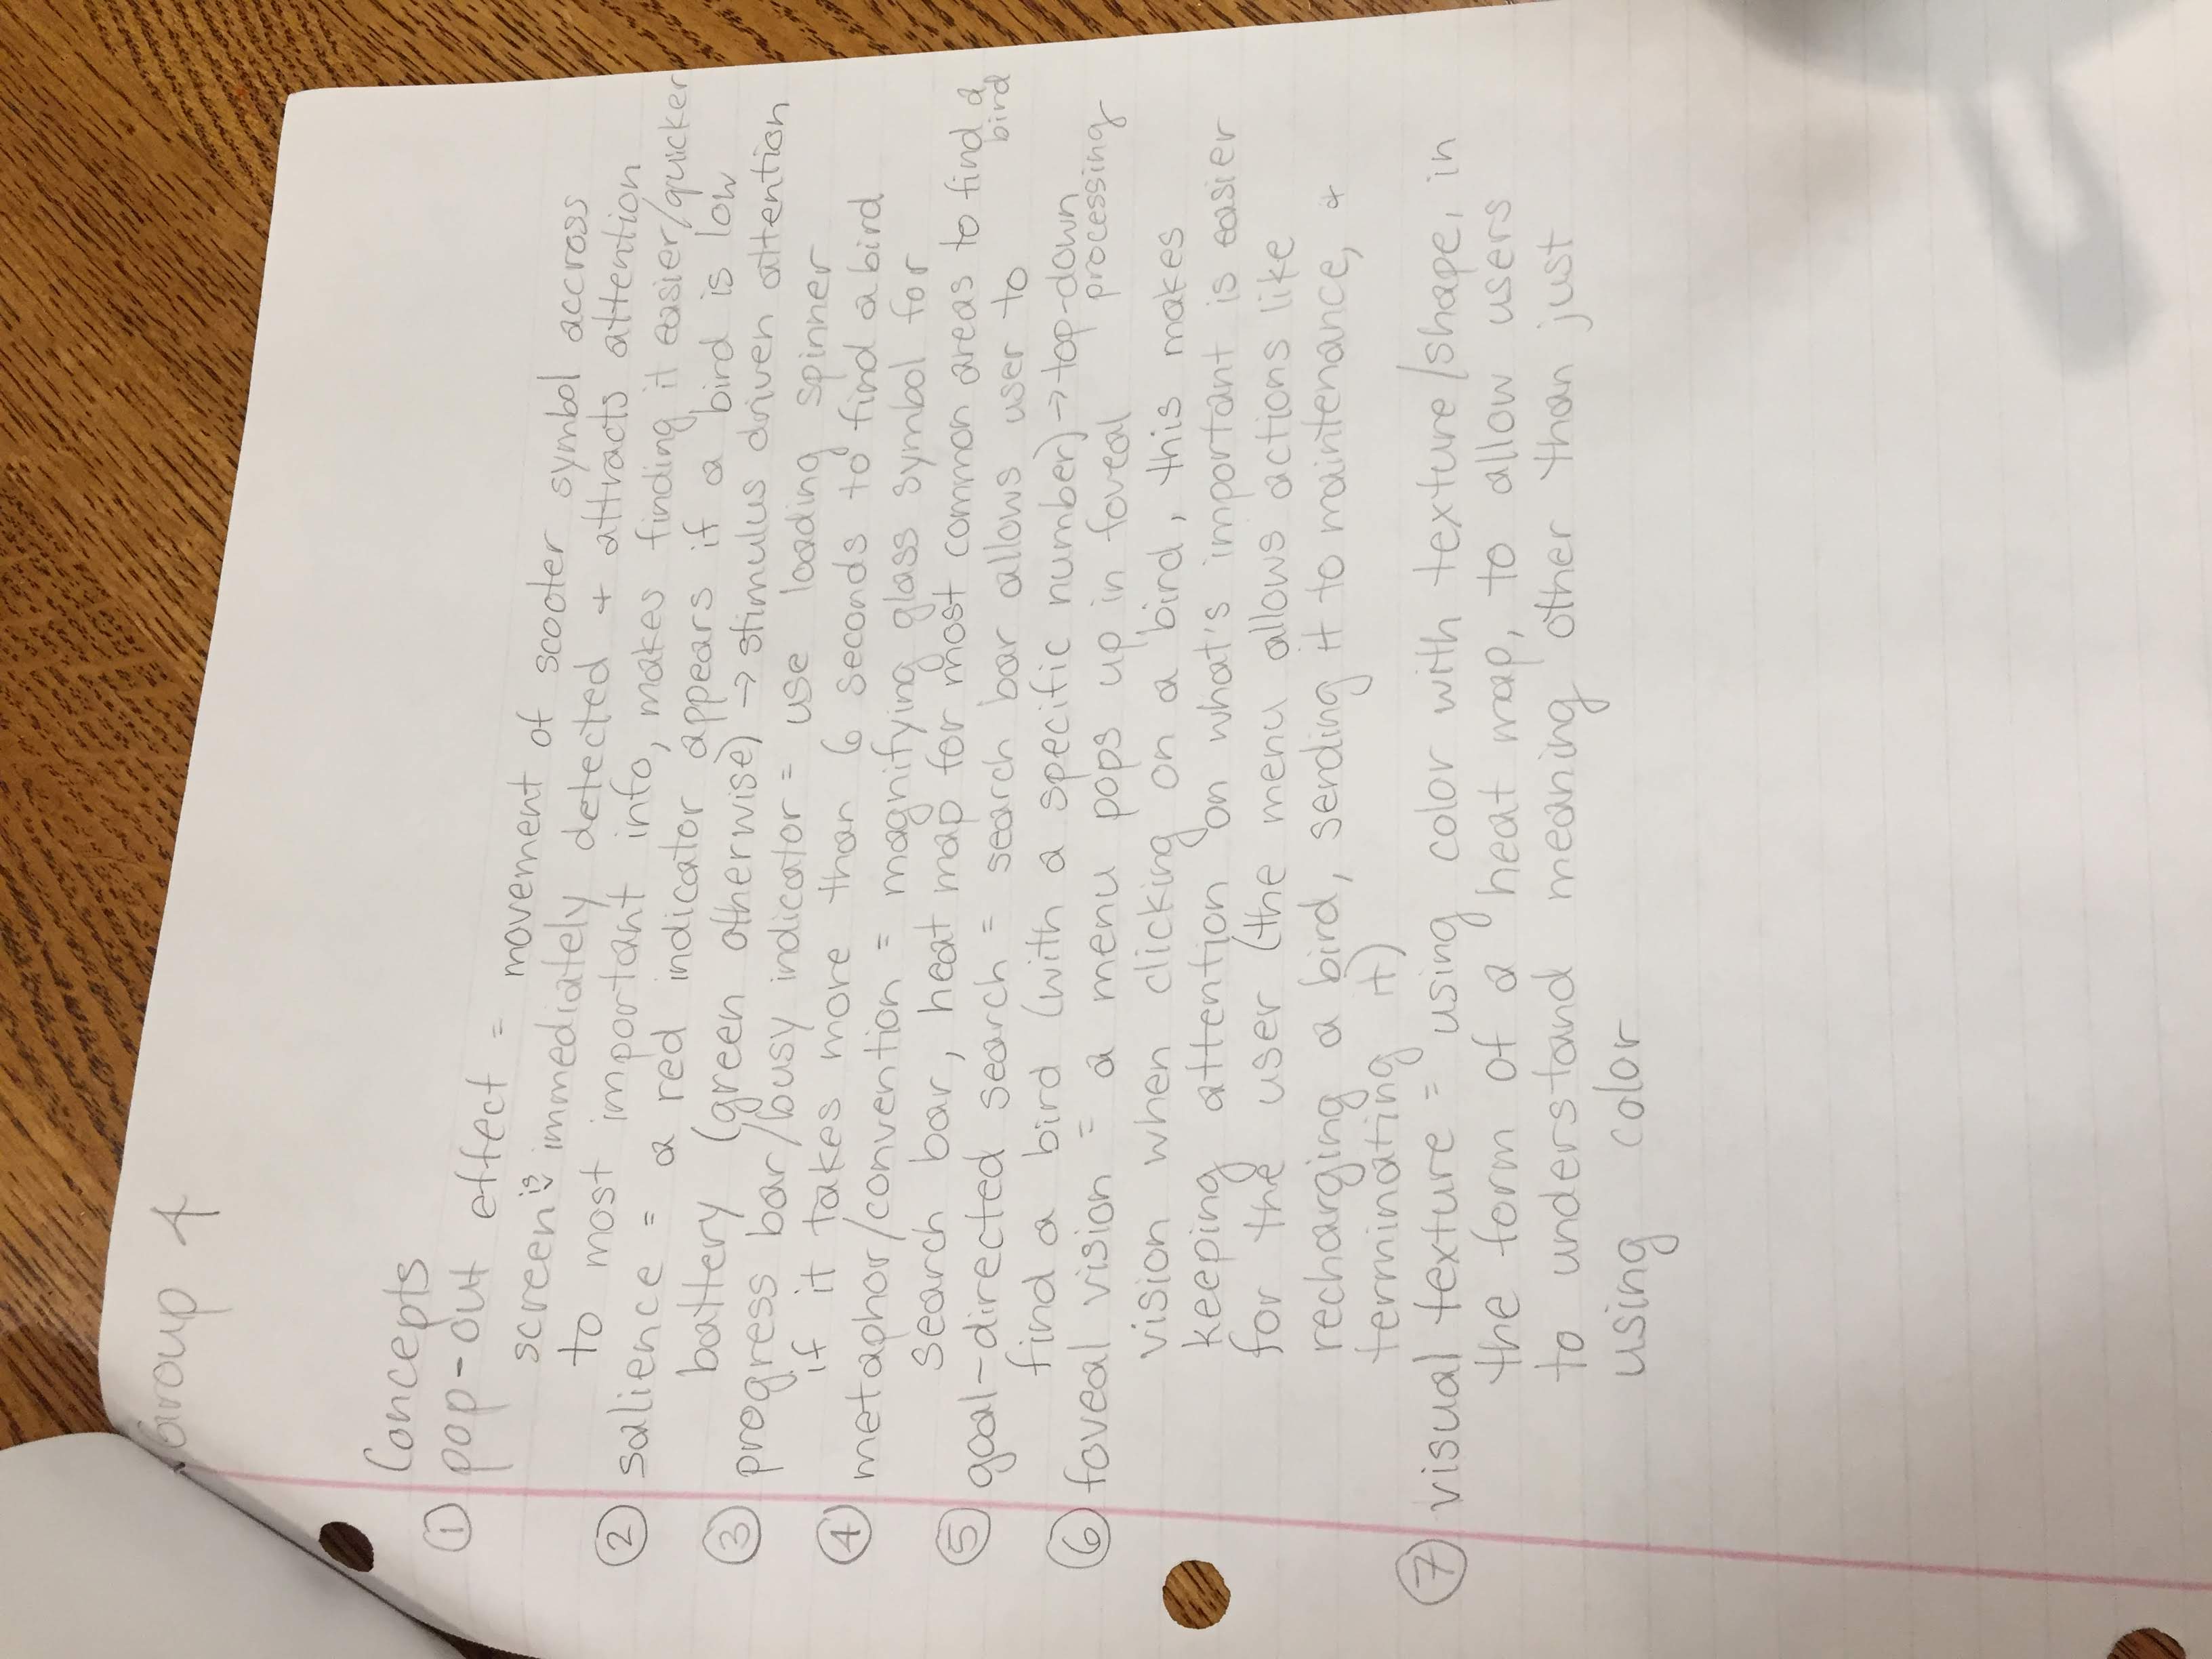 Group 4
Concepts
① pop-out effect = movement of scooter symbol accross
screen is immediately detected + attracts attention
to most important info, makes finding it easier/quicker
② salience = a red indicator appears if a bird is low
battery (green otherwise) → stimulus driven attention
③ progress bar/busy indicator = use loading spinner
if it takes more than 6 seconds to find a bird
④ metaphor/convention = magnifying glass symbol for
search bar, heat map for most common areas to find a
bird
⑤ goal-directed search = search bar allows user to
find a bird (with a specific number) → top-down
processing
⑥ foveal vision = a menu pops up in foveal
vision when clicking on a bird, this makes
keeping attention on what's important is easier
for the user (the menu allows actions like
recharging a bird, sending it to maintenance, +
terminating it)
⑦ visual texture = using color with texture/shape, in
the form of a heat map, to allow users
to understand meaning other than just
using color